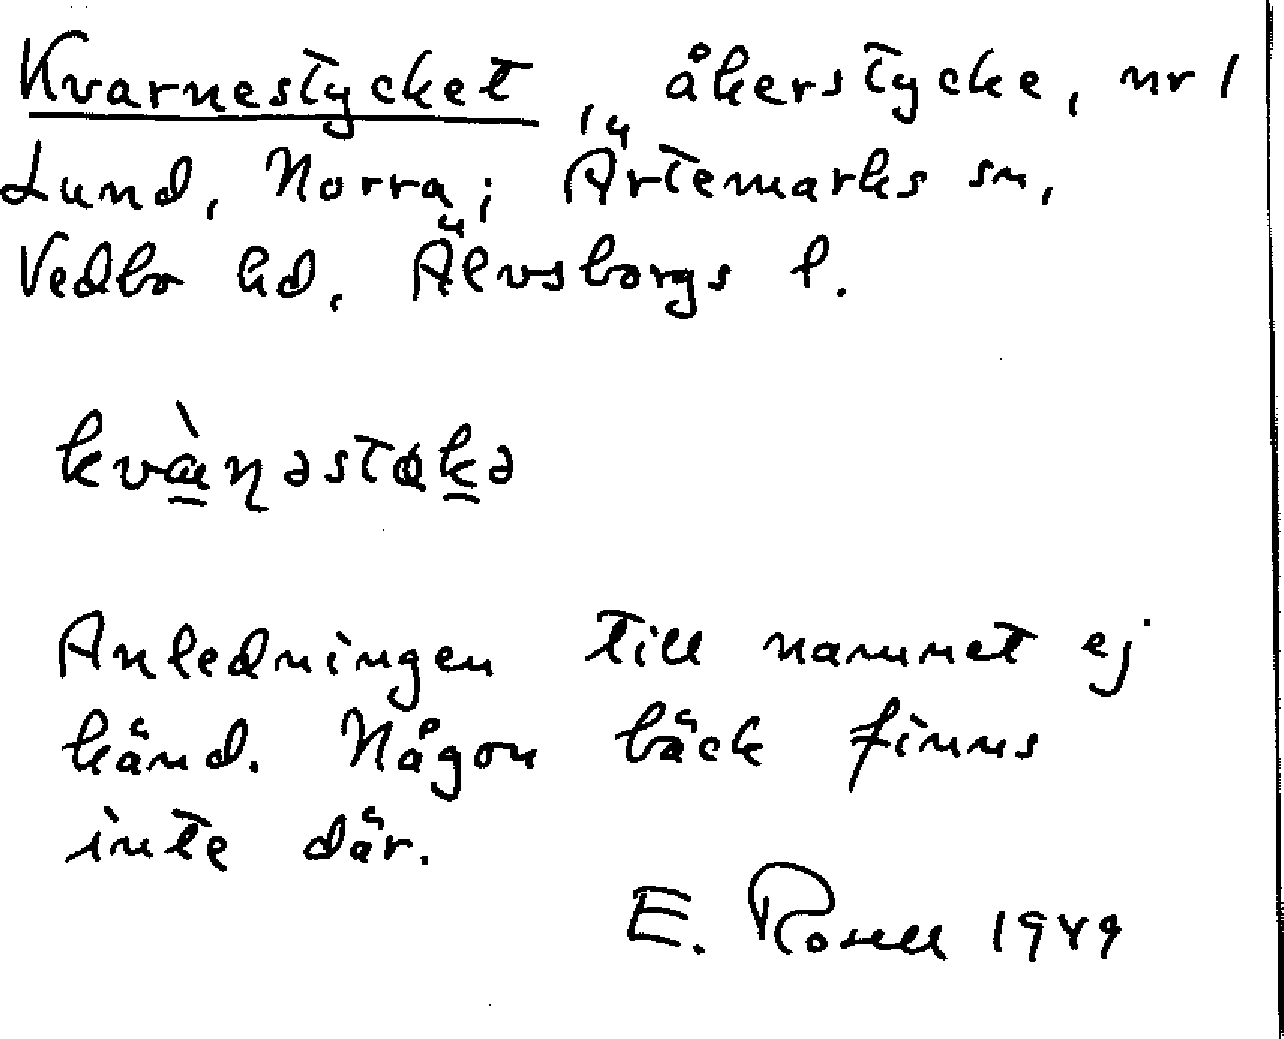 Kvarnestycket, åkerstycke, nr 1
Lund, Norra; Ärtemarks sn,
Vedbo hd, Älvsborgs l.
kvæ̀ɳəstøkə
Anledningen till namnet ej
känd. Någon bäck finns
inte där.
E. Rosell 1949